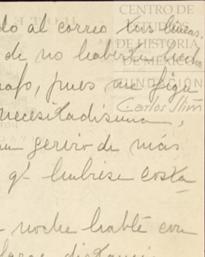 do al correo tus líneas.
de no haberte hecho
rafo, pues me figu
necesitadísima,
un servir de más
q' hubiese costa
noche hablé con
larga distancia
CENTRO DE
ESTUDIOS
DE HISTORIA
DE MÉXICO
FUNDACIÓN
Carlos Slim